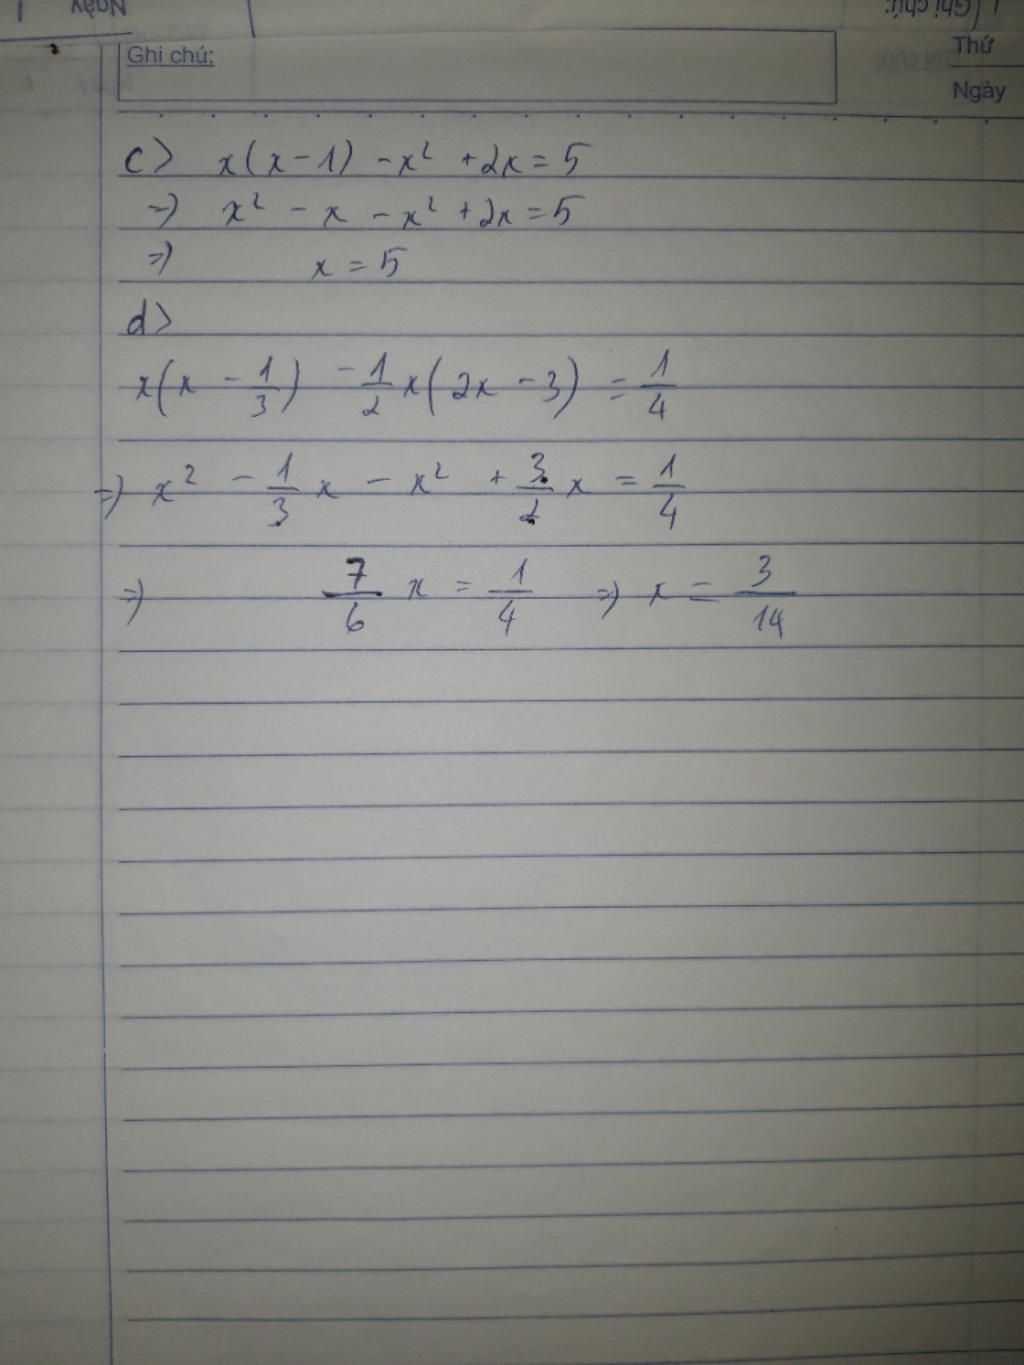 Ngày 1
Ghi chú:
Ghi chú:
Thứ
Ngày
c> x(x-1) -x² +2x = 5
=> x² - x - x² + 2x = 5
=> x = 5
d>
x(x - 1/3) - 1/2 x(2x - 3) = 1/4
=> x² - 1/3 x - x² + 3/2 x = 1/4
=> 7/6 x = 1/4 => x = 3/14